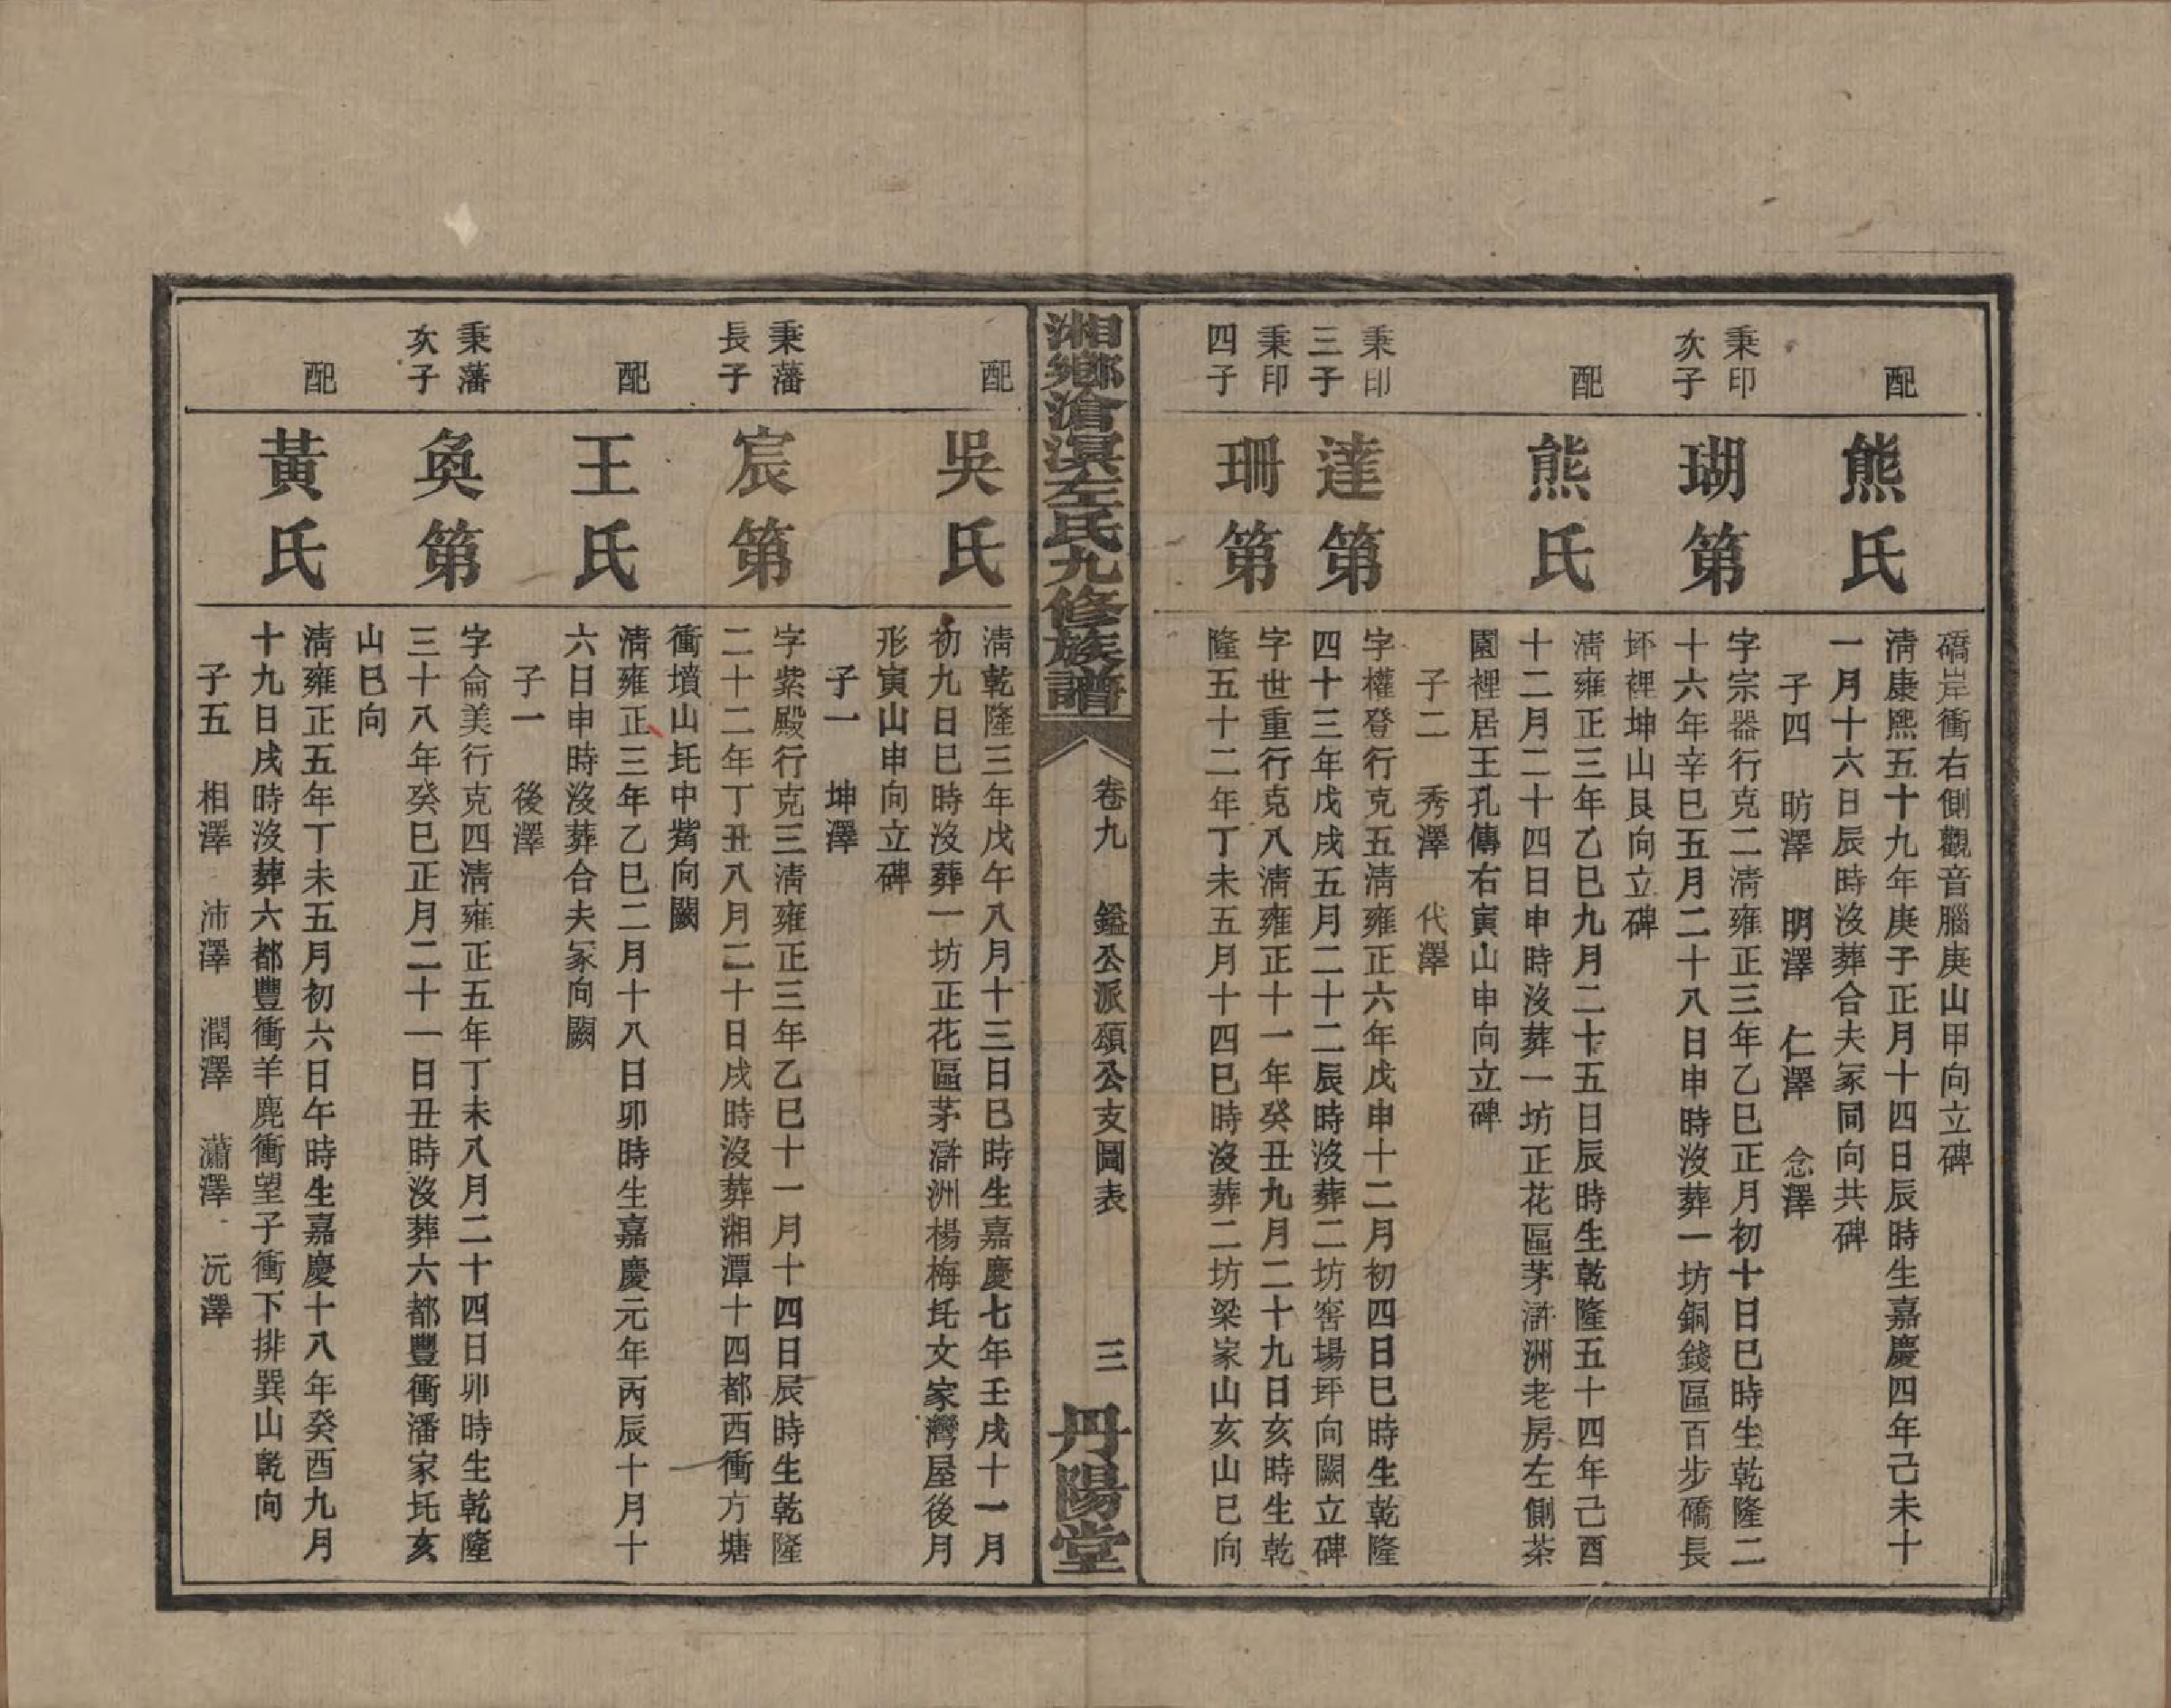 礄岸衝右側觀音腦庚山甲向立碑
配
熊氏
淸康熙五十九年庚子正月十四日辰時生嘉慶四年己未十
一月十六日辰時沒葬合夫冢同向共碑
子四 昉澤 明澤 仁澤 念澤
秉印
次子
瑚第
字宗器行克二淸雍正三年乙巳正月初十日巳時生乾隆二
十六年辛巳五月二十八日申時沒葬一坊銅錢區百步礄長
坏裡坤山艮向立碑
配
熊氏
淸雍正三年乙巳九月二十五日辰時生乾隆五十四年己酉
十二月二十四日申時沒葬一坊正花區茅滸洲老房左側茶
園裡居王孔傳右寅山申向立碑
子二 秀澤 代澤
秉印
三子
達第
字權登行克五淸雍正六年戊申十二月初四日巳時生乾隆
四十三年戊戌五月二十二辰時沒葬二坊窖場坪向闕立碑
秉印
四子
珊第
字世重行克八淸雍正十一年癸丑九月二十九日亥時生乾
隆五十二年丁未五月十四巳時沒葬二坊梁家山亥山巳向
湘鄉滄溟左氏九修族譜
卷九 鑑公派碩公支圖表 三
丹陽堂
配
吳氏
淸乾隆三年戊午八月十三日巳時生嘉慶七年壬戌十一月
初九日巳時沒葬一坊正花區茅滸洲楊梅圫文家灣屋後月
形寅山申向立碑
子一 坤澤
秉藩
長子
宸第
字紫殿行克三淸雍正三年乙巳十一月十四日辰時生乾隆
二十二年丁丑八月二十日戌時沒葬湘潭十四都西衝方塘
衝墳山圫中觜向闕
配
王氏
淸雍正三年乙巳二月十八日卯時生嘉慶元年丙辰十月十
六日申時沒葬合夫冢向闕
子一 後澤
秉藩
次子
奐第
字侖美行克四淸雍正五年丁未八月二十四日卯時生乾隆
三十八年癸巳正月二十一日丑時沒葬六都豐衝潘家圫亥
山巳向
配
黃氏
淸雍正五年丁未五月初六日午時生嘉慶十八年癸酉九月
十九日戌時沒葬六都豐衝羊鹿衝望子衝下排巽山乾向
子五 相澤 沛澤 潤澤 瀟澤 沅澤